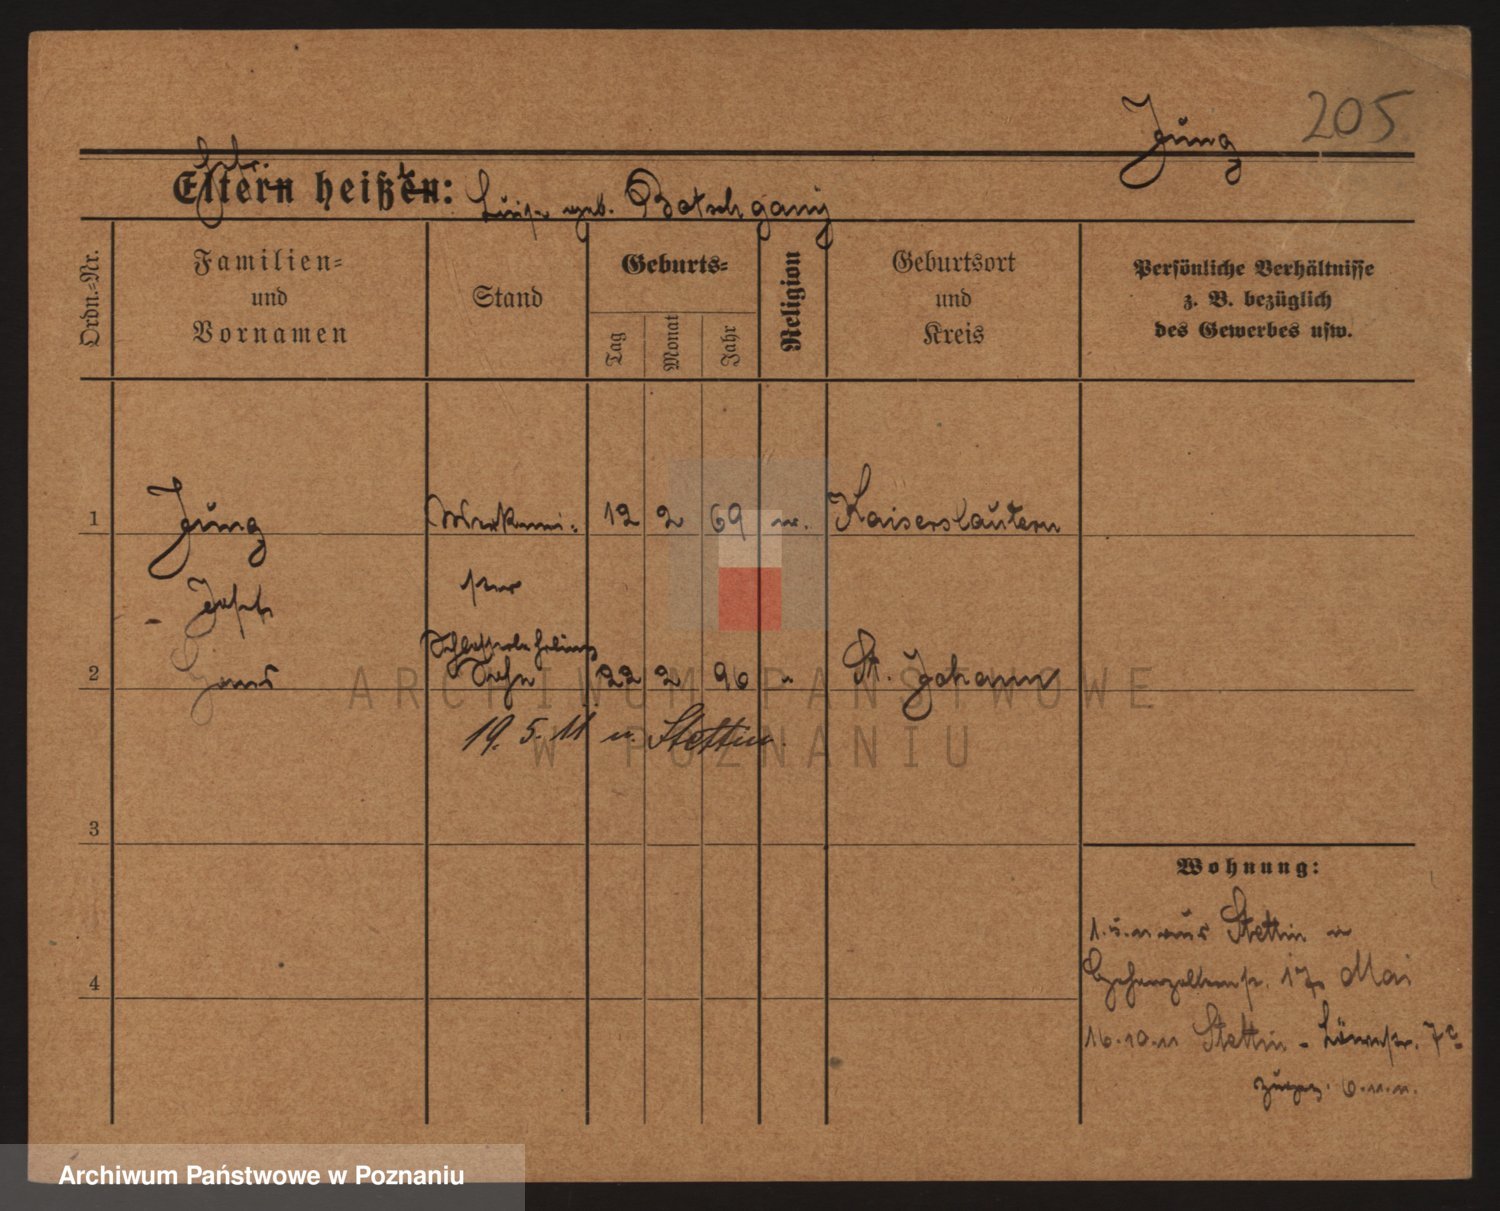 205
Jung
Eltern heißen:
Luise geb. Botschganz
Ordn.-Nr.
Familien-
und
Vornamen
Stand
Geburts-
Tag
Monat
Jahr
Religion
Geburtsort
und
Kreis
Persönliche Verhältnisse
z. B. bezüglich
des Gewerbes usw.
1 Jung 12 2 69 Kaiserslautern
Josef
2 Sohn 22 2 96 " St. Johann
19. 5. 11 n. Stettin.
3
4
Wohnung:
aus Stettin
17 Mai
16.10.11 Stettin - 7c
ARCHIWUM PAŃSTWOWE
W POZNANIU
Archiwum Państwowe w Poznaniu